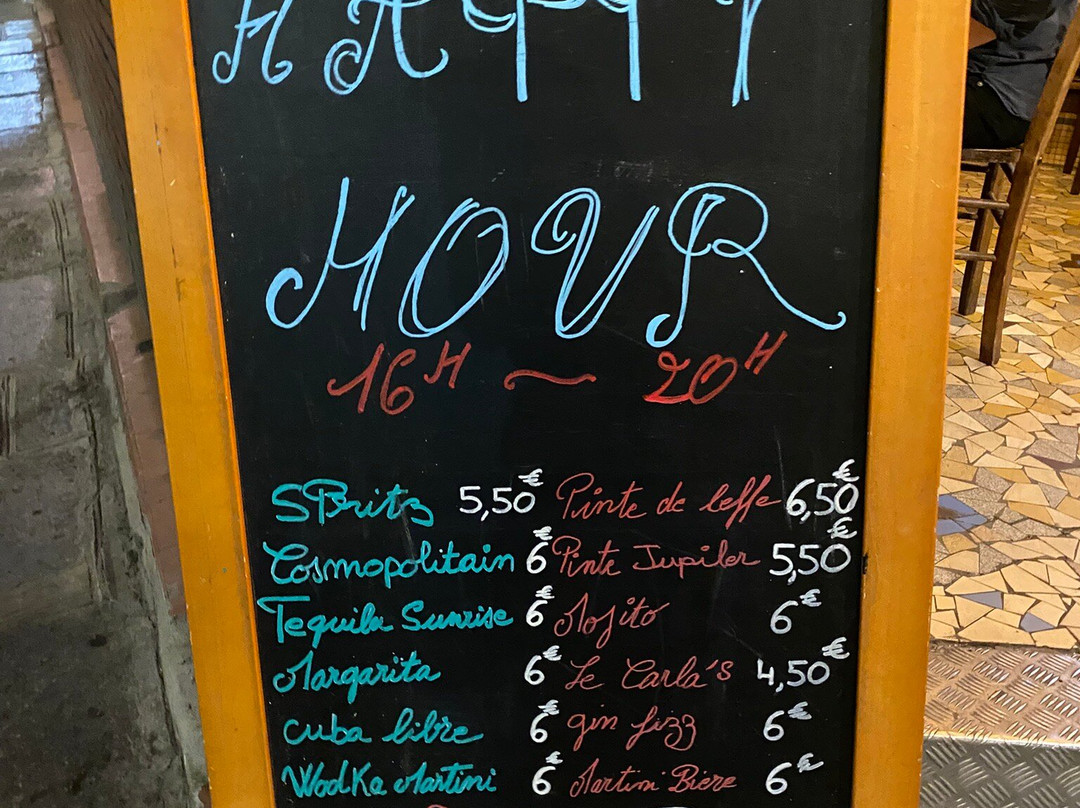 HAPPY
HOUR
16H ~ 20H
SPritz 5,50€ Pinte de leffe 6,50€
Cosmopolitain 6€ Pinte Jupiler 5,50€
Tequila Sunrise 6€ Mojito 6€
Margarita 6€ Le Carla's 4,50€
cuba libre 6€ gin fizz 6€
WodKa Martini 6€ Martini Biere 6€